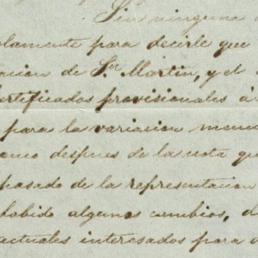 Sin ninguna
olamente para decirle que
acion de Sn Martin, y el
ertificados provisionales á
para la variacion menci
enco despues de la nota qu
pasado de la representacion
habido algunos cambios, d
actuales interesados para